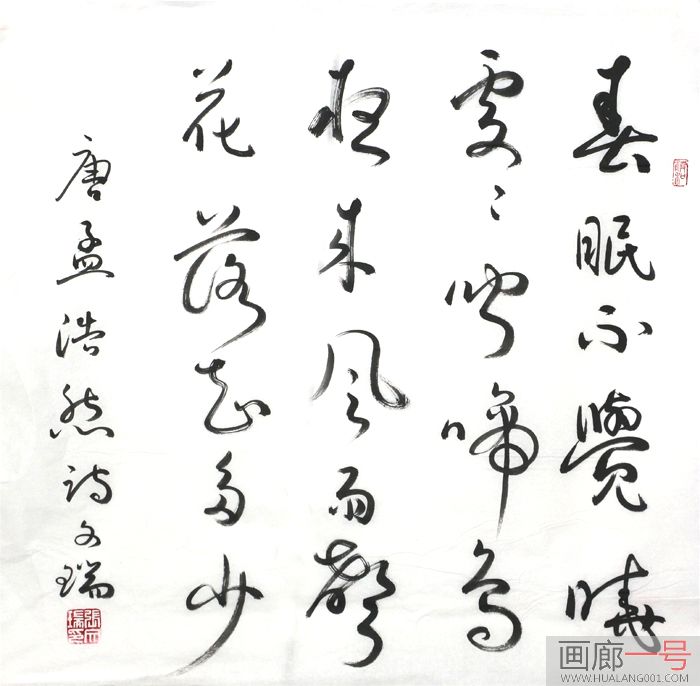 春眠不覺曉
處〻聞啼鳥
夜来風雨聲
花落知多少
唐孟浩然詩文瑞
張文瑞印
画廊一号
WWW.HUALANG001.COM